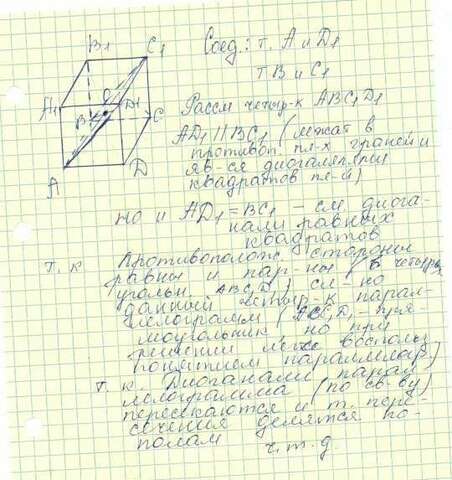 B1
C1
A1
O
D1
B
C
A
D
Соед.: т. А и D1
т В и С1
Рассм четыр-к ABC1D1
AD1 || BC1 (лежат в
противоп. пл-х граней и
яв-ся диогалями
квадратов пл-й)
но и AD1 = BC1 – см диога-
нали равных
квадратов
т. к противополож. стороны
равны и пар-ны (в четырех
угольн. ABC1D1) см-но
данный четыр-к парал-
лелограмм (ABC1D1 – пря
моугольник, но при
решении легче воспольз
понятием параллелогр)
т. к. Диоганали парал
лелограмма (по св-ву)
пересекаются и т. пере-
сечения делятся по-
полам ч.т.д.